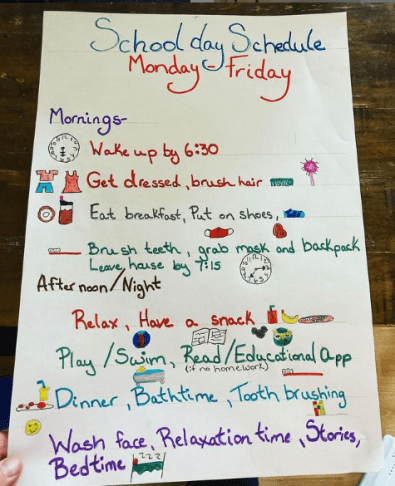 School day Schedule
Monday Friday
Mornings-
Wake up by 6:30
Get dressed, brush hair
Eat breakfast, Put on shoes,
Brush teeth, grab mask and backpack
Leave house by 7:15
After noon/Night
Relax, Have a snack
Play/Swim, Read/Educational App
(if no homework)
Dinner, Bathtime, Tooth brushing
Wash face, Relaxation time, Stories,
Bedtime zzz